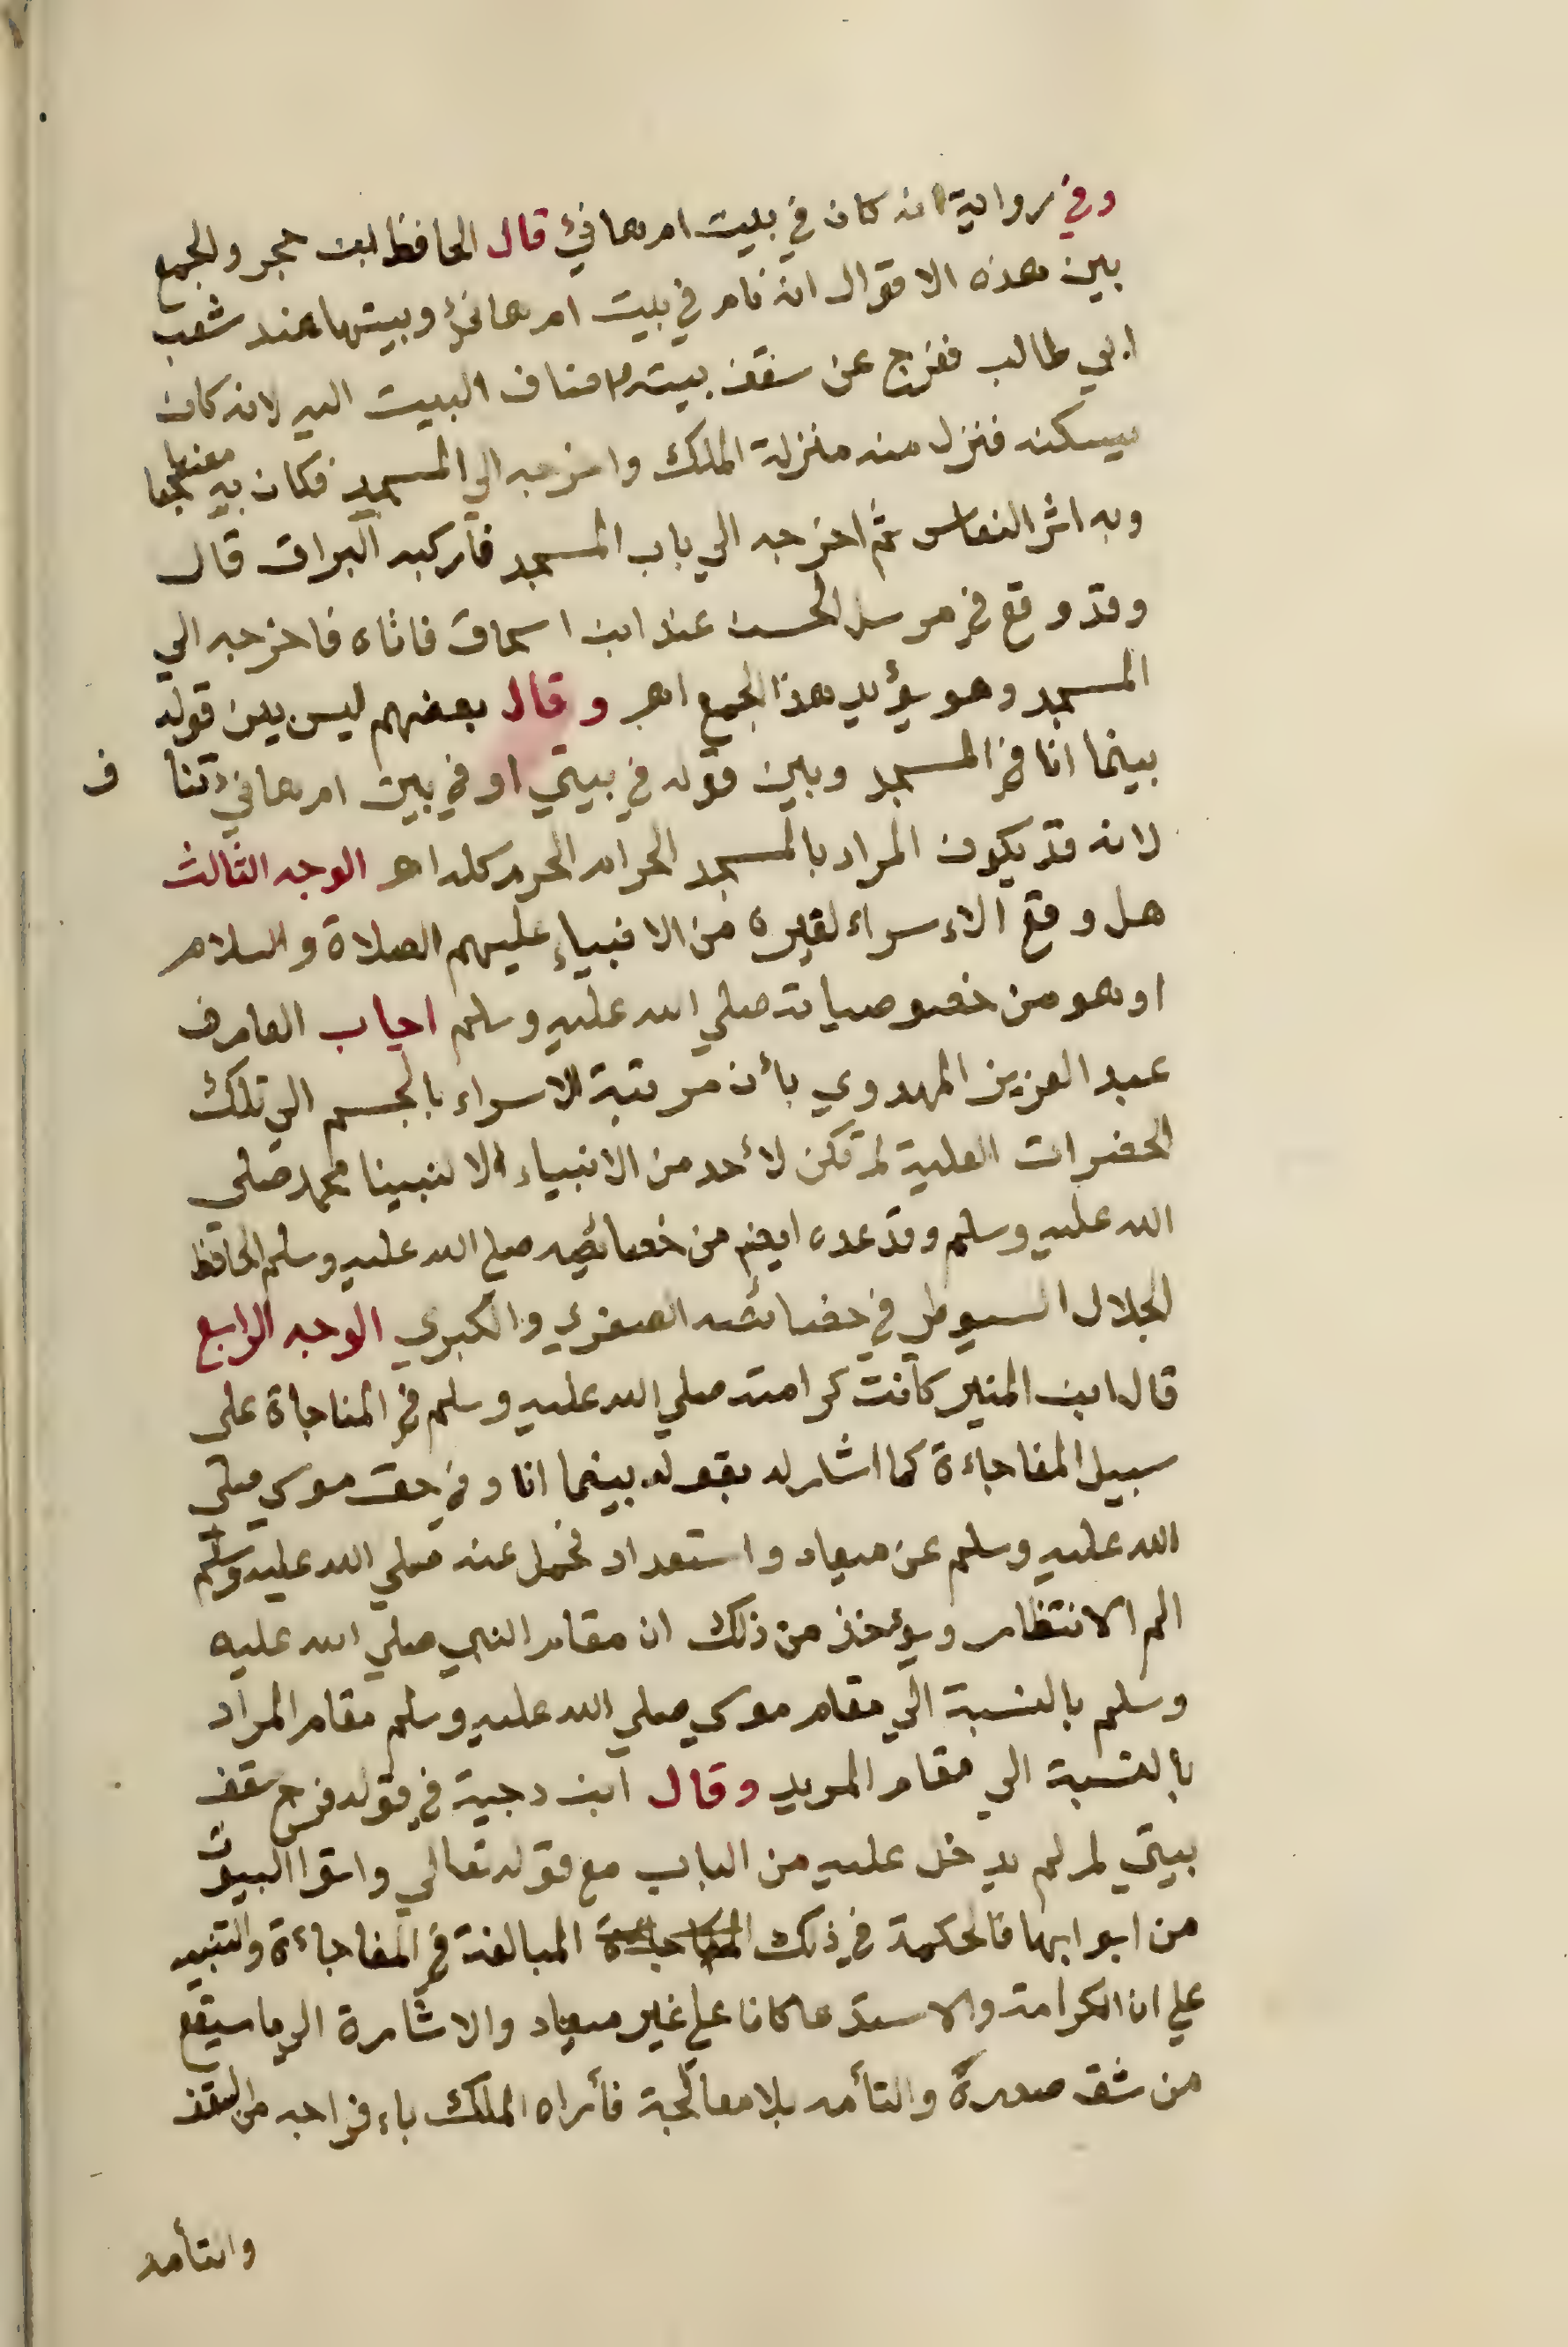 وفي رواية انه كان في بيت ام هانئ قال الحافظ ابن حجر والجمع
بين هذه الاقوال انه نام في بيت ام هانئ وبيتها عند شعب
ابي طالب ففرج عن سقف بيته واضاف البيت اليه لانه كان
يسكنه فنزل منه منزلة الملك واخرجه الي المسجد فكان به مضطجعا
وبه اثر النعاس ثم اخرجه الي باب المسجد فاركبه البراق قال
وقد وقع في مرسل الحسن عند ابن اسحاق فاتاه فاخرجه الي
المسجد وهو يؤيد هذا الجمع اهـ وقال بعضهم ليس بين قوله
بينما انا في المسجد وبين قوله في بيتي او في بيت ام هانئ تنا ف
لانه قد يكون المراد بالمسجد الحرام الحرم كله اهـ الوجه الثالث
هل وقع الاسراء لغيره من الانبياء عليهم الصلاة والسلام
او هو من خصوصياته صلي الله عليه وسلم اجاب العارف
عبد العزيز المهدوي بأن مرتبة الاسراء بالجسم الي تلك
الحضرات العلية لم تكن لأحد من الانبياء الا لنبينا محمد صلى
الله عليه وسلم وقد عده ايضم من خصائصه صلي الله عليه وسلم الحافظ
الجلال السيوطي في خصائصه الصغري والكبري الوجه الرابع
قال ابن المنير كانت كرامته صلي الله عليه وسلم في المناجاة على
سبيل المفاجاءة كما اشار له بقوله بينما انا وفي حق موسي صلى
الله عليه وسلم عن ميعاد واستعداد فحمل عنه صلي الله عليه وسلم
الم الانتظار ويؤخذ من ذلك ان مقام النبي صلي الله عليه
وسلم بالنسبة الي مقام موسي صلي الله عليه وسلم مقام المراد
بالنسبة الي مقام المريد وقال ابن دحية في قوله فرج سقف
بيتي لم لم يدخل عليه من الباب مع قوله تعالي واتوا البيوت
من ابوابها فالحكمة في ذلك المبالغة في المفاجاءة والتنبيه
علي ان الكرامة والاستدعا كانا علي غير ميعاد والاشارة الي ما سيقع
من شق صدره والتأمه بلا معالجة فأراه الملك باءفراجه من السقف
والتأمه